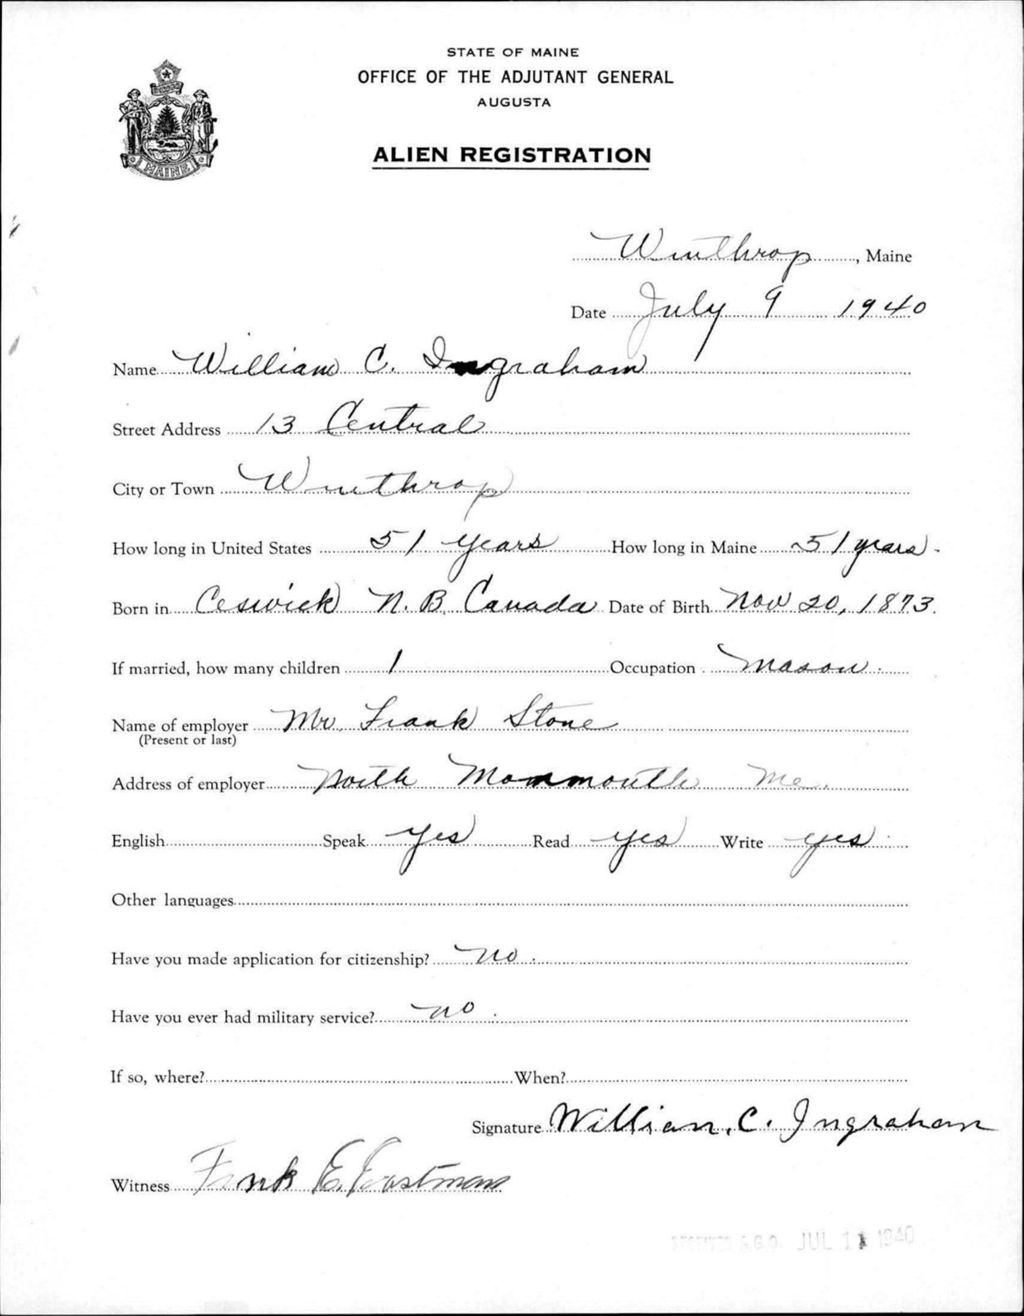 STATE OF MAINE
OFFICE OF THE ADJUTANT GENERAL
AUGUSTA
ALIEN REGISTRATION
MAINE
Winthrop, Maine
Date July 9 1940
Name William C. Ingraham
Street Address 13 Central
City or Town Winthrop
How long in United States 51 years How long in Maine 51 years.
Born in Ceswick N.B. Canada Date of Birth Nov 20, 1873.
If married, how many children 1 Occupation Mason.
Name of employer Mr. Frank Stone
(Present or last)
Address of employer North Monmouth Me.
English Speak yes Read yes Write yes.
Other languages
Have you made application for citizenship? No.
Have you ever had military service? no.
If so, where? When?
Signature William. C. Ingraham
Witness Frank E. Eastman
A.G.O. JUL 11 1940